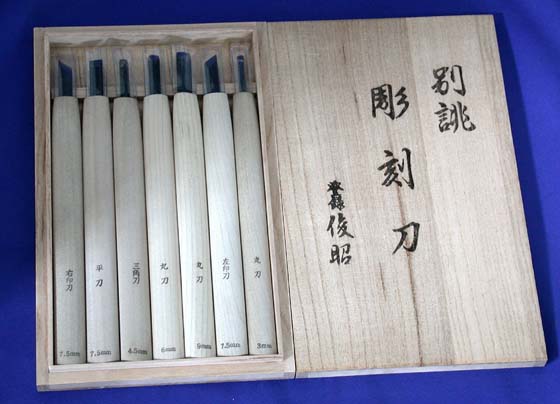 別誂
彫刻刀
登録 俊昭
右印刀
7.5mm
平刀
7.5mm
三角刀
4.5mm
丸刀
6mm
丸刀
9mm
左印刀
7.5mm
丸刀
3mm